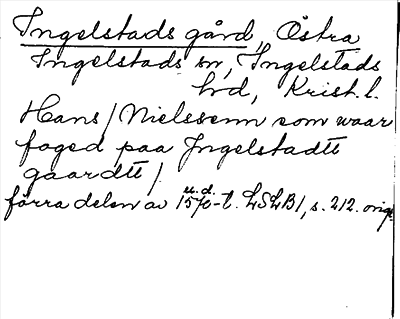 Ingelstads gård, Östra
Ingelstads sn, Ingelstads
hd, Krist. l.
Hans / Nielssenn som waar
foged paa Jngelstadtt
gaardtt /
förra delen av 1570-t. u.d. LSLB1, s. 212. orig.